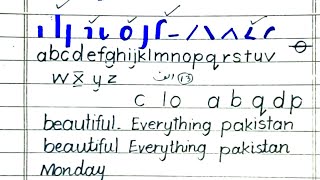 abcdefghijklmnopqrstuv
wxyz الف ۱۳
c lo a b q d p
beautiful. Everything pakistan
beautiful Everything pakistan
Monday